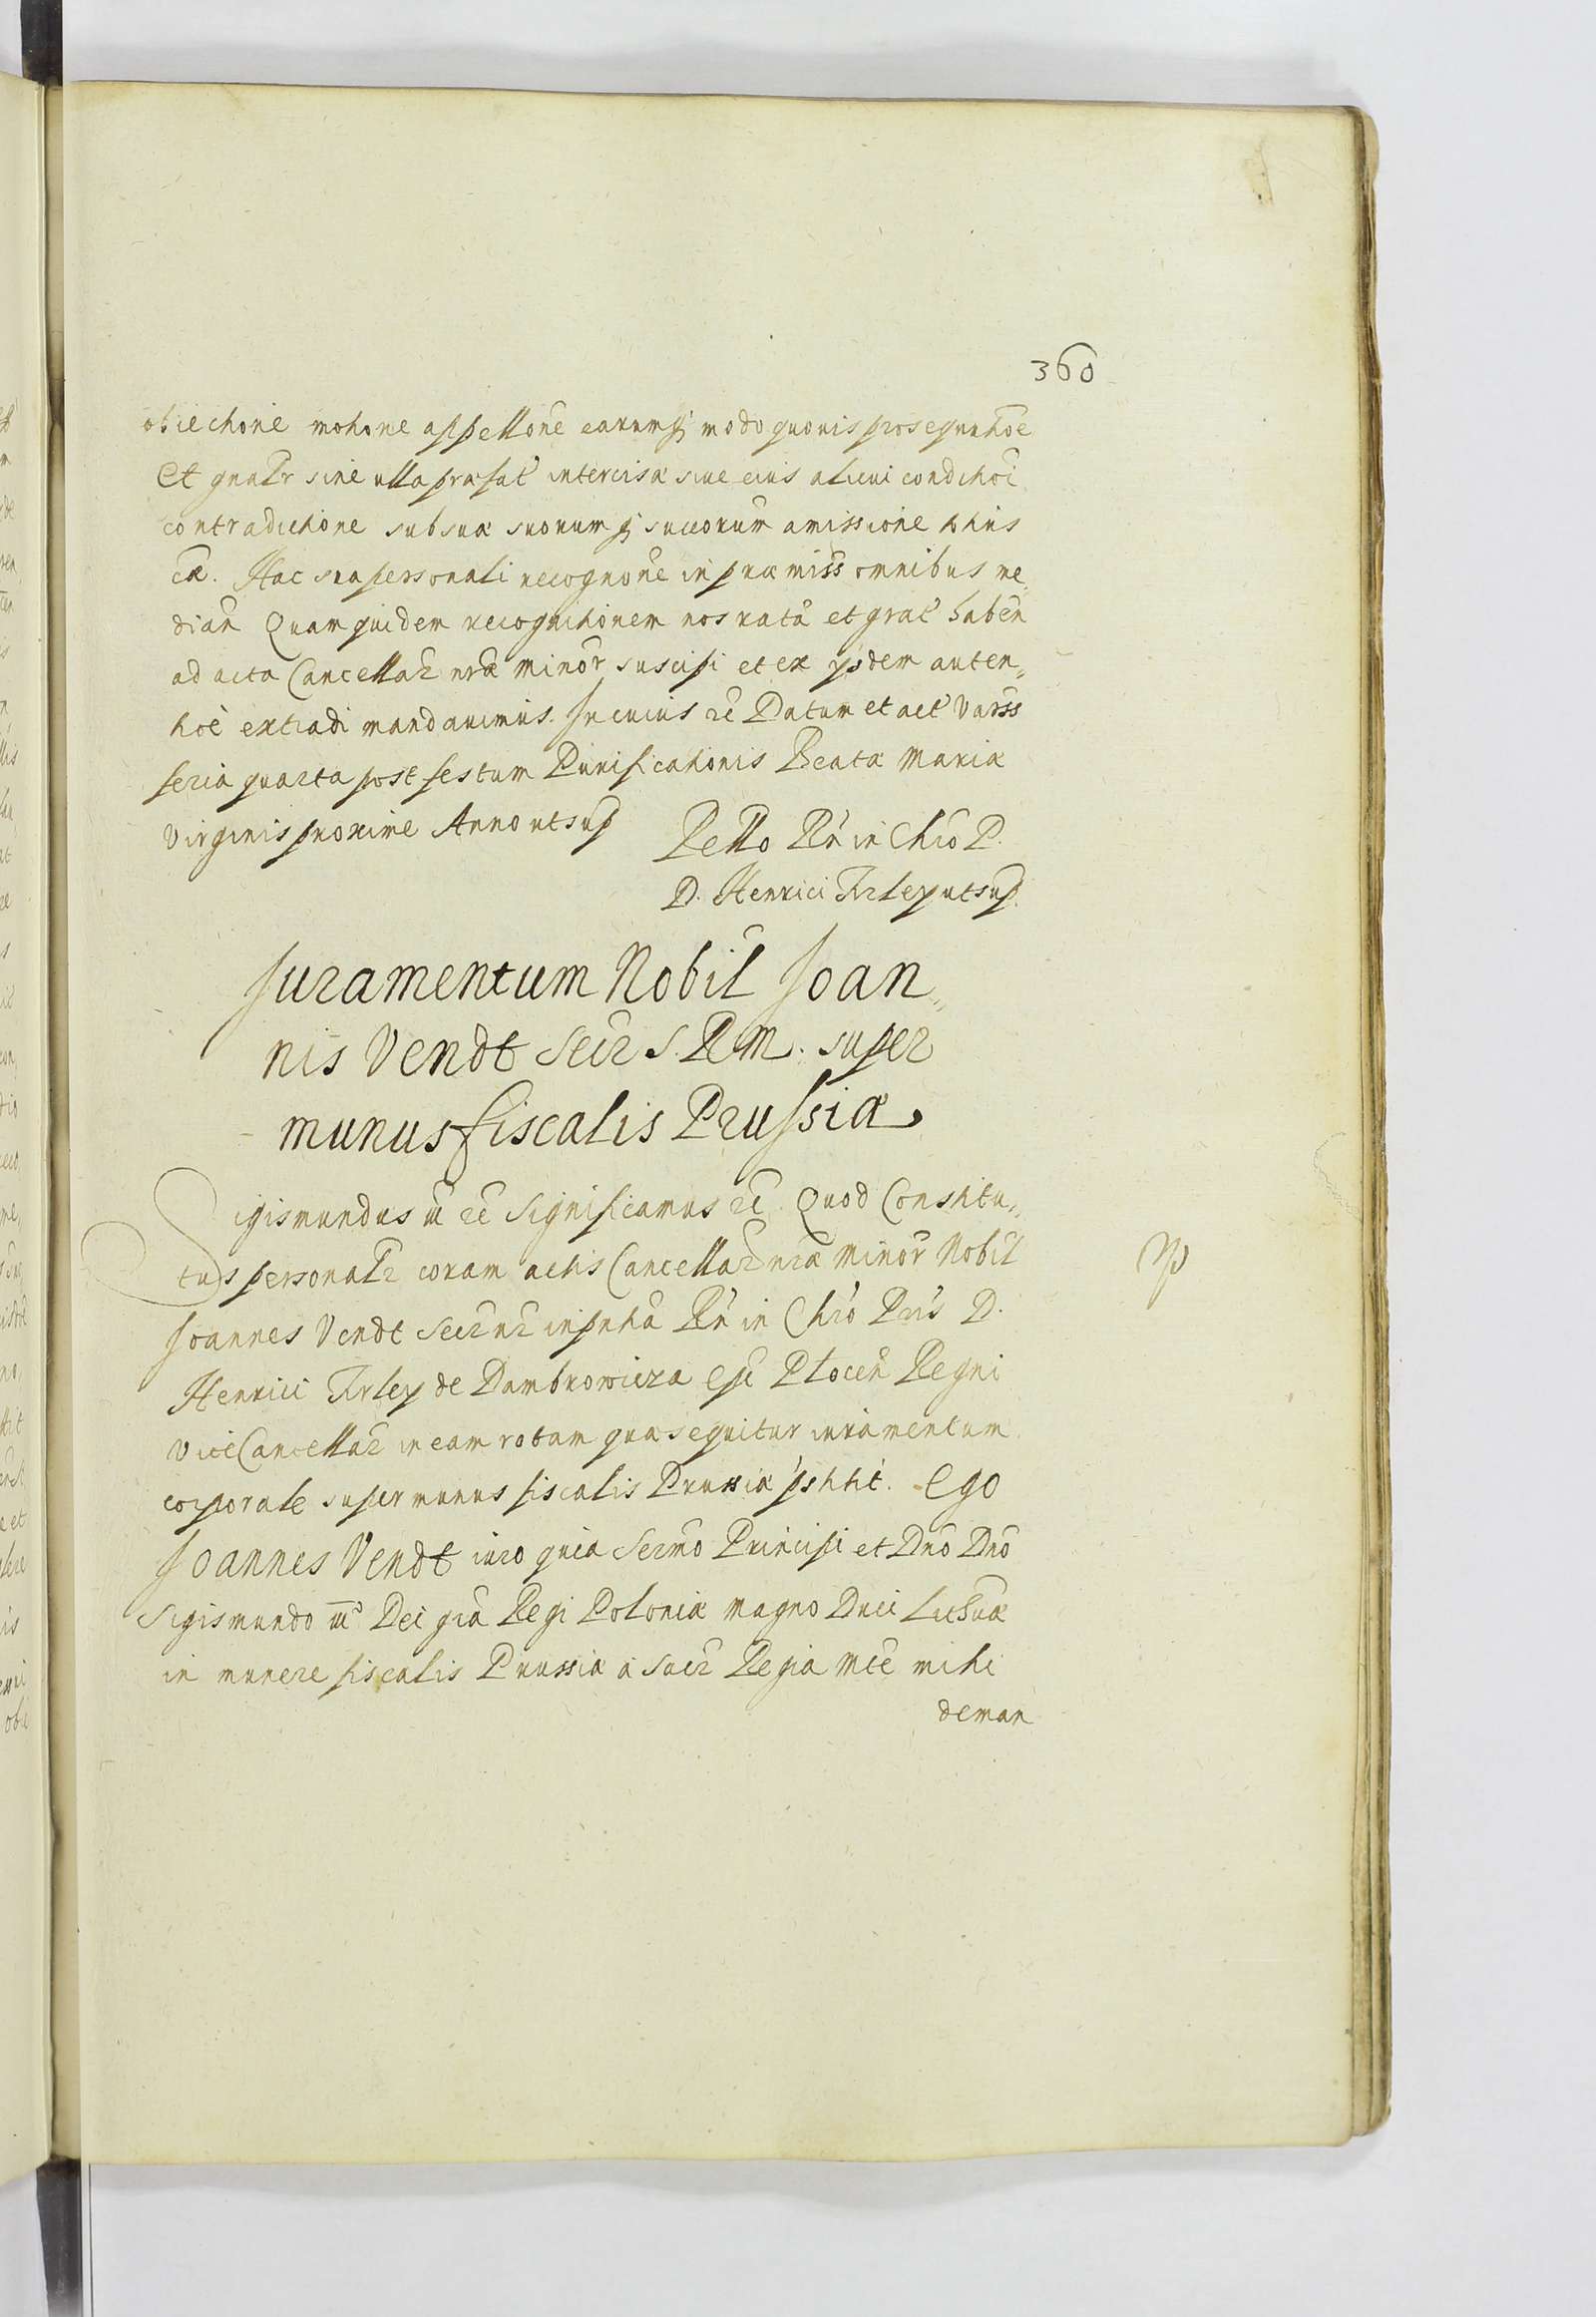 360
obiectione motione appellōne earumq; modo quovis prosequutiōe
Et gnalr sine ulla præfat intercisæ siue eius alicui conditiōi
contradictione sub suæ suorumq; succorum amissione
eæ. Hac sua personali recognōne in præmiss omnibus me
dian Quam quidem recognitionem nos ratā et grat haben
ad acta Cancellar nræ minor suscipi et ex ijsdem auten„
tiōe extradi mandauimus. In cuius rē Datum et act Varss
feria quarta post festum Purificationis Beatæ Mariæ
Virginis proxime Anno ut sup
Rello Rn in Chro P.
D. Henrici Firley ut sup.
Juramentum Nobil Joan„
nis Vendt Secr S. R. M. super
munus fiscalis Prussiæ
Sigismundus III rē Significamus rē Quod Constitu„
tus personalr coram actis Cancellar nræ minor Nobil
Joannes Vendt Secr nr in pntiā Rn in Chro Pris D.
Henrici Firley de Dambrowicza Epi Plocen Regni
ViceCancellar in eam rotam quæ sequitur iuramentum
corporale super munus fiscalis Prussiæ pstitit. Ego
Joannes Vendt iuro quia Sermo Principi et Dno Dno
Sigismundo III Dei gra Regi Poloniæ Magno Duci Lithuæ
in munere fiscalis Prussiæ a Sacr Regia Mte mihi
deman